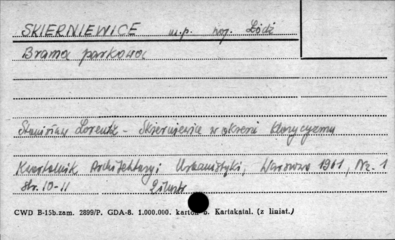 SKIERNIEWICE m.p. woj. Łódź
Brama parkowa
Stanisław Lorentz - Skierniewice w okresie klasycyzmu
Kwartalnik Architektury i Urbanistyki, Warszawa 1961, Nr. 1
str. 10-11
CWD B-15b.zam. 2899/P. GDA-8. 1.000.000. karton b. Kartakatal. (z liniat./)